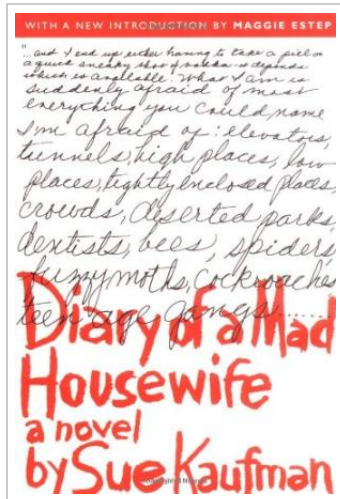 WITH A NEW INTRODUCTION BY MAGGIE ESTEP
"...and I end up either having to take a pill or
a quick sneaky shot of vodka - it depends
which is available. What I am is
suddenly afraid of most
everything you could name
I'm afraid of: elevators,
tunnels, high places, low
places, tightly enclosed places,
crowds, deserted parks,
dentists, bees, spiders,
fuzzy moths, cockroaches
teen-age gangs.......
Diary of a Mad
Housewife
a novel
by Sue Kaufman